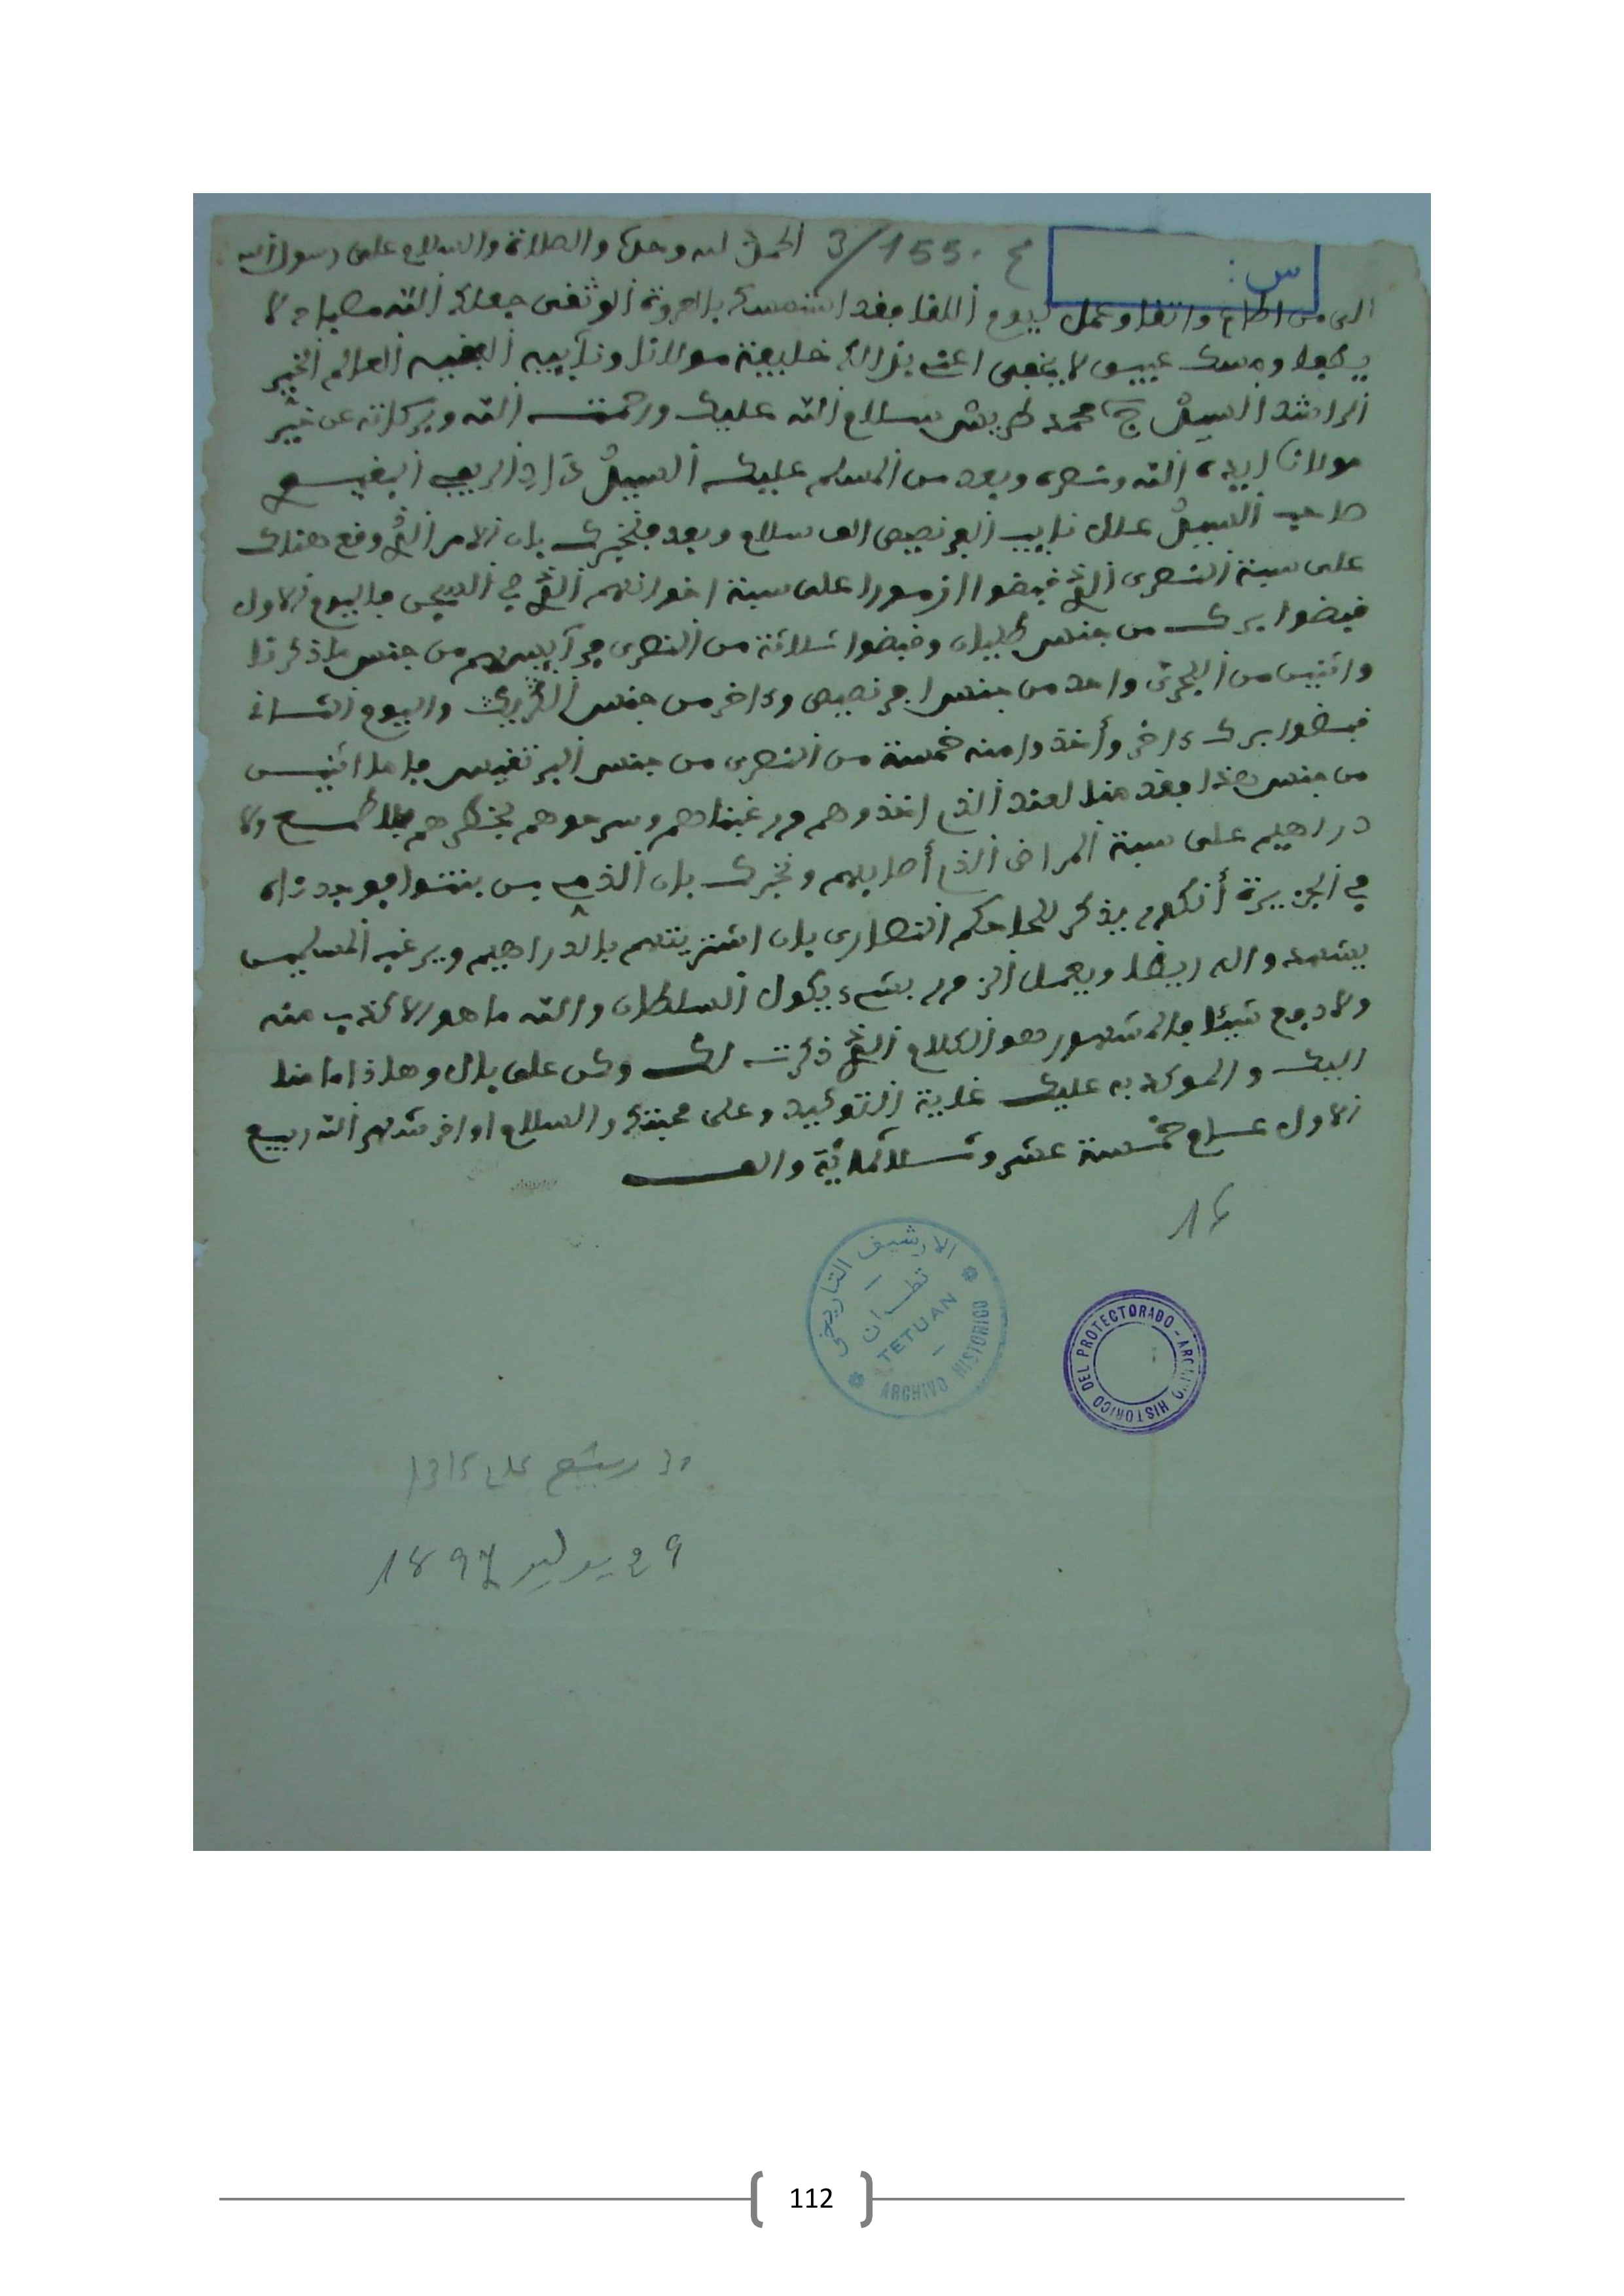 س:
ع 155/3 الحمد لله وحده والصلاة والسلام على رسول الله
الى من اطاع واتقا وعمل ليوم اللقا فقد استمسك بالعروة الوثقى جعلك الله مصباح لا
يطفا ومسك عبيق لا يخفى اعني بذالك خليفة مولانا ونآيبه الفقيه العالم الخير
الراشد السيد ج محمد طريس سلام الله عليك ورحمت الله وبركاته عن خير
مولانا ايده الله ونصره وبعد من المسلم عليك السيد الريفي البقيوي
صاحب السيد علال نايب الفرنصيص الف سلام وبعد فنخبرك بان الامر الذي وقع هناك
على سبة النصرى الذي قبضوا ازمورا على سبة اخوانهم الذي في السجن فاليوم الاول
قبضوا برك من جنس طليان وقبضوا ثلاثة من النصرى من جنس ما ذكرنا
واثنين من البحرية واحد من جنس افرنصيص وءاخر من جنس الكريك واليوم الثاني
قبضوا برك ءاخر وأخذوا منه خمسة من النصرى من جنس البرتقيس فاما اثنين
من جنس هذا فقد منا لعند الذي اخذوهم ورغبناهم وسرحوهم بخطرهم بلا طمع ولا
دراهيم على سبة المراض الذي أصابهم ونخبرك بان الذمي بن بنتوا
في الجزيرة أنكور يذكر للحاكم النصارى بان اشتريتهم بالدراهيم ويرغب المسلمين
يشهدوا له ايضا ويعمل الزور بشيء يكول السلطان والله ما هو الا كذب منه
ولا دفع شيئا فالمشهور هو الكلام الذي ذكرت لك وكن على بال وهاذا ما منا
اليك والموكد به عليك غاية التوكيد وعلى محبتك والسلام اواخر شهر الله ربيع
الاول عام خمسة عشر وثلاثمائة والف
16
الارشيف التاريخي
تطوان
TETUAN
ARCHIVO HISTORICO
DEL PROTECTORADO - ARCHIVO HISTORICO
1315
29 يوليو 1897
112